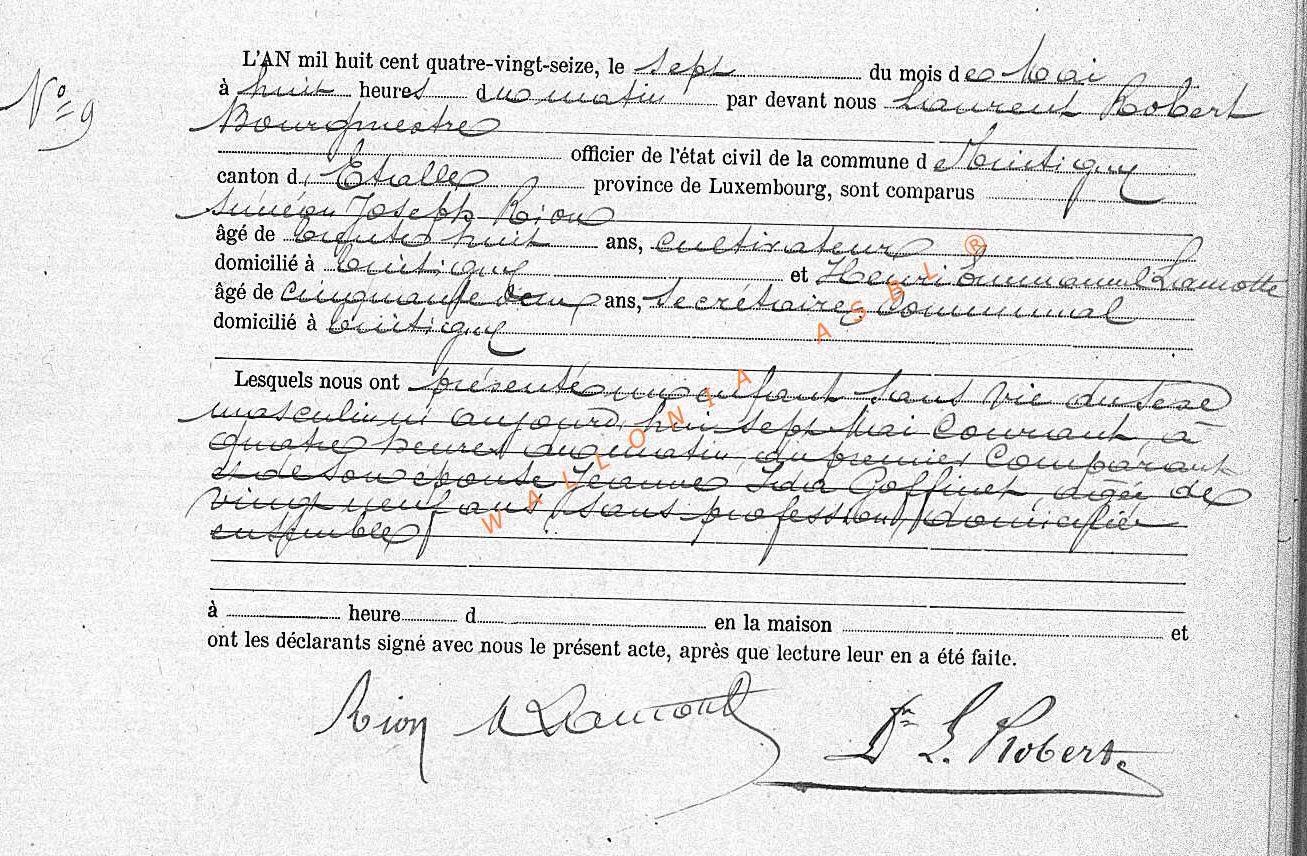 N° 9
L'AN mil huit cent quatre-vingt-seize, le sept du mois de Mai
à huit heures du matin par devant nous Laurent Robert
Bourgmestre
officier de l'état civil de la commune d
canton d' Etalle province de Luxembourg, sont comparus
Joseph Rion
âgé de huit ans, cultivateur
domicilié à et Henri Emmanuel Lamotte
âgé de cinquante deux ans, secrétaire communal
domicilié à
Lesquels nous ont présenté un enfant sans vie du sexe
masculin né aujourd'hui sept Mai courant, à
quatre heures du matin, du premier comparant
et de son épouse Jeanne Ida Goffinet, âgée de
vingt neuf ans, sans profession, domicilié
ensemble
à heure d en la maison et
ont les déclarants signé avec nous le présent acte, après que lecture leur en a été faite.
Rion Lamotte Dr L. Robert
WALLONIA ASBL ®